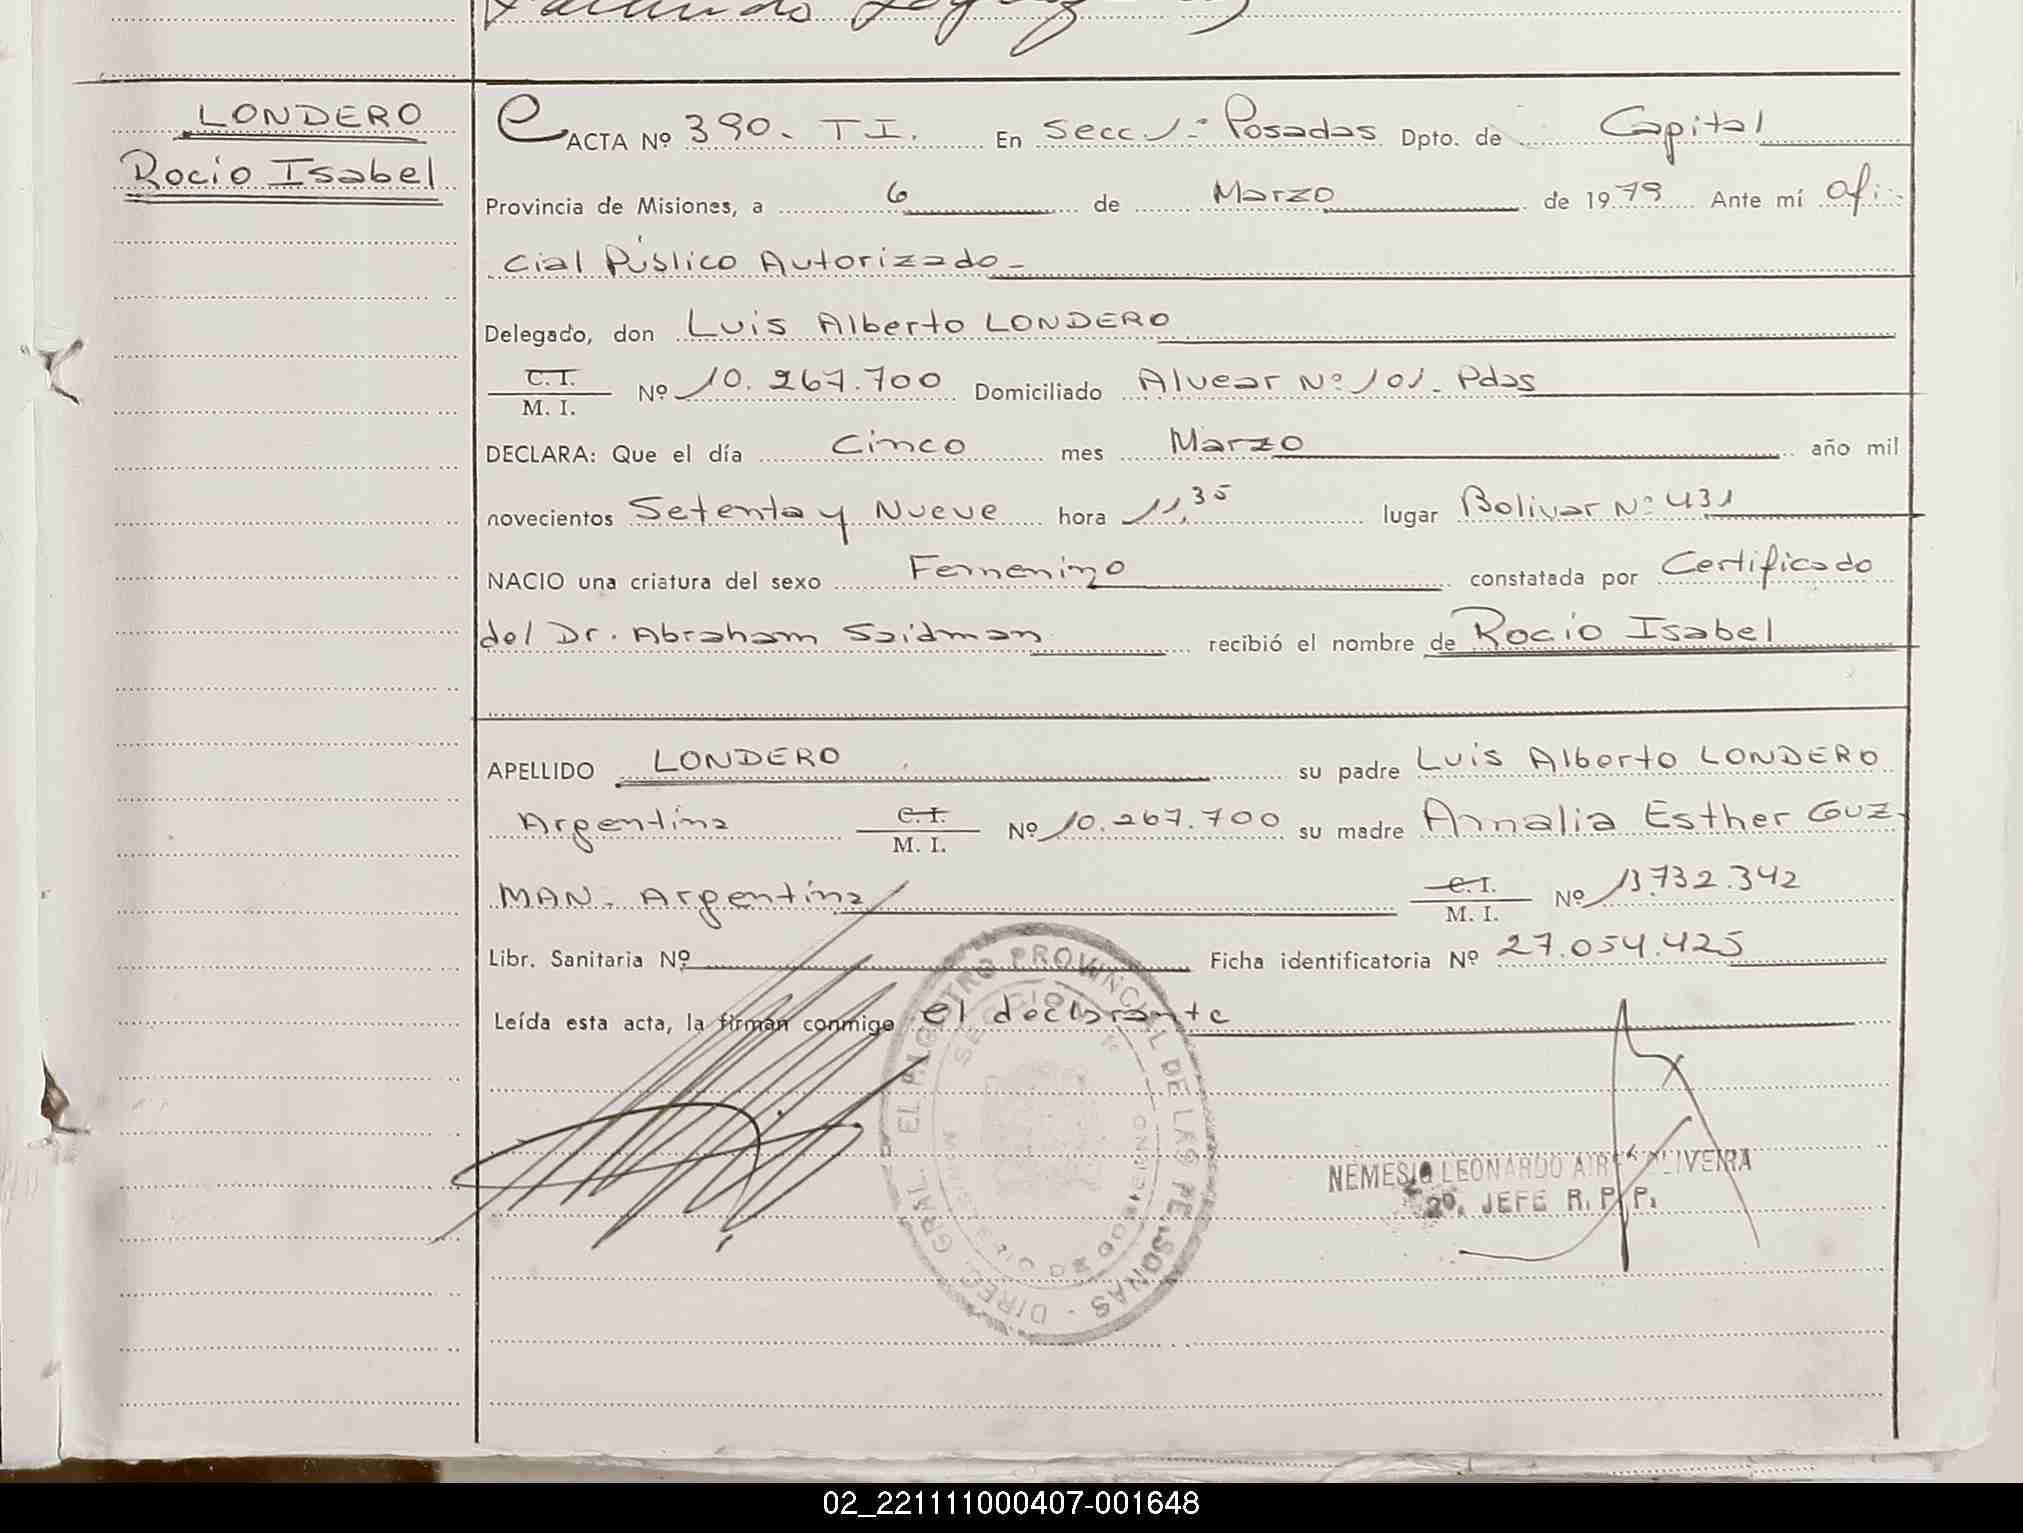 LONDERO
Rocio Isabel
ACTA Nº 390. T I. En Secc 1ª Posadas Dpto. de Capital
Provincia de Misiones, a 6 de Marzo de 1979 Ante mí Ofi-
cial Público Autorizado-
Delegado, don Luis Alberto LONDERO
C. I.
M. I. Nº 10.267.700 Domiciliado Alvear Nº 101- Pdas
DECLARA: Que el día Cinco mes Marzo año mil
novecientos Setenta y Nueve hora 11,35 lugar Bolivar Nº 431
NACIO una criatura del sexo Femenino constatada por Certificado
del Dr. Abraham Saidman recibió el nombre de Rocio Isabel
APELLIDO LONDERO su padre Luis Alberto LONDERO
Argentina C. I. M. I. Nº 10.267.700 su madre Amalia Esther GUZ-
MAN- Argentina C. I. M. I. Nº 13.732.342
Libr. Sanitaria Nº Ficha identificatoria Nº 27.054.425
Leída esta acta, la firman conmigo el declarante
DIREC. GRAL EL REGISTRO PROVINCIAL DE LAS PERSONAS -
NEMESIO LEONARDO AIRES OLIVEIRA
2º. JEFE R. P. P.
02_221111000407-001648